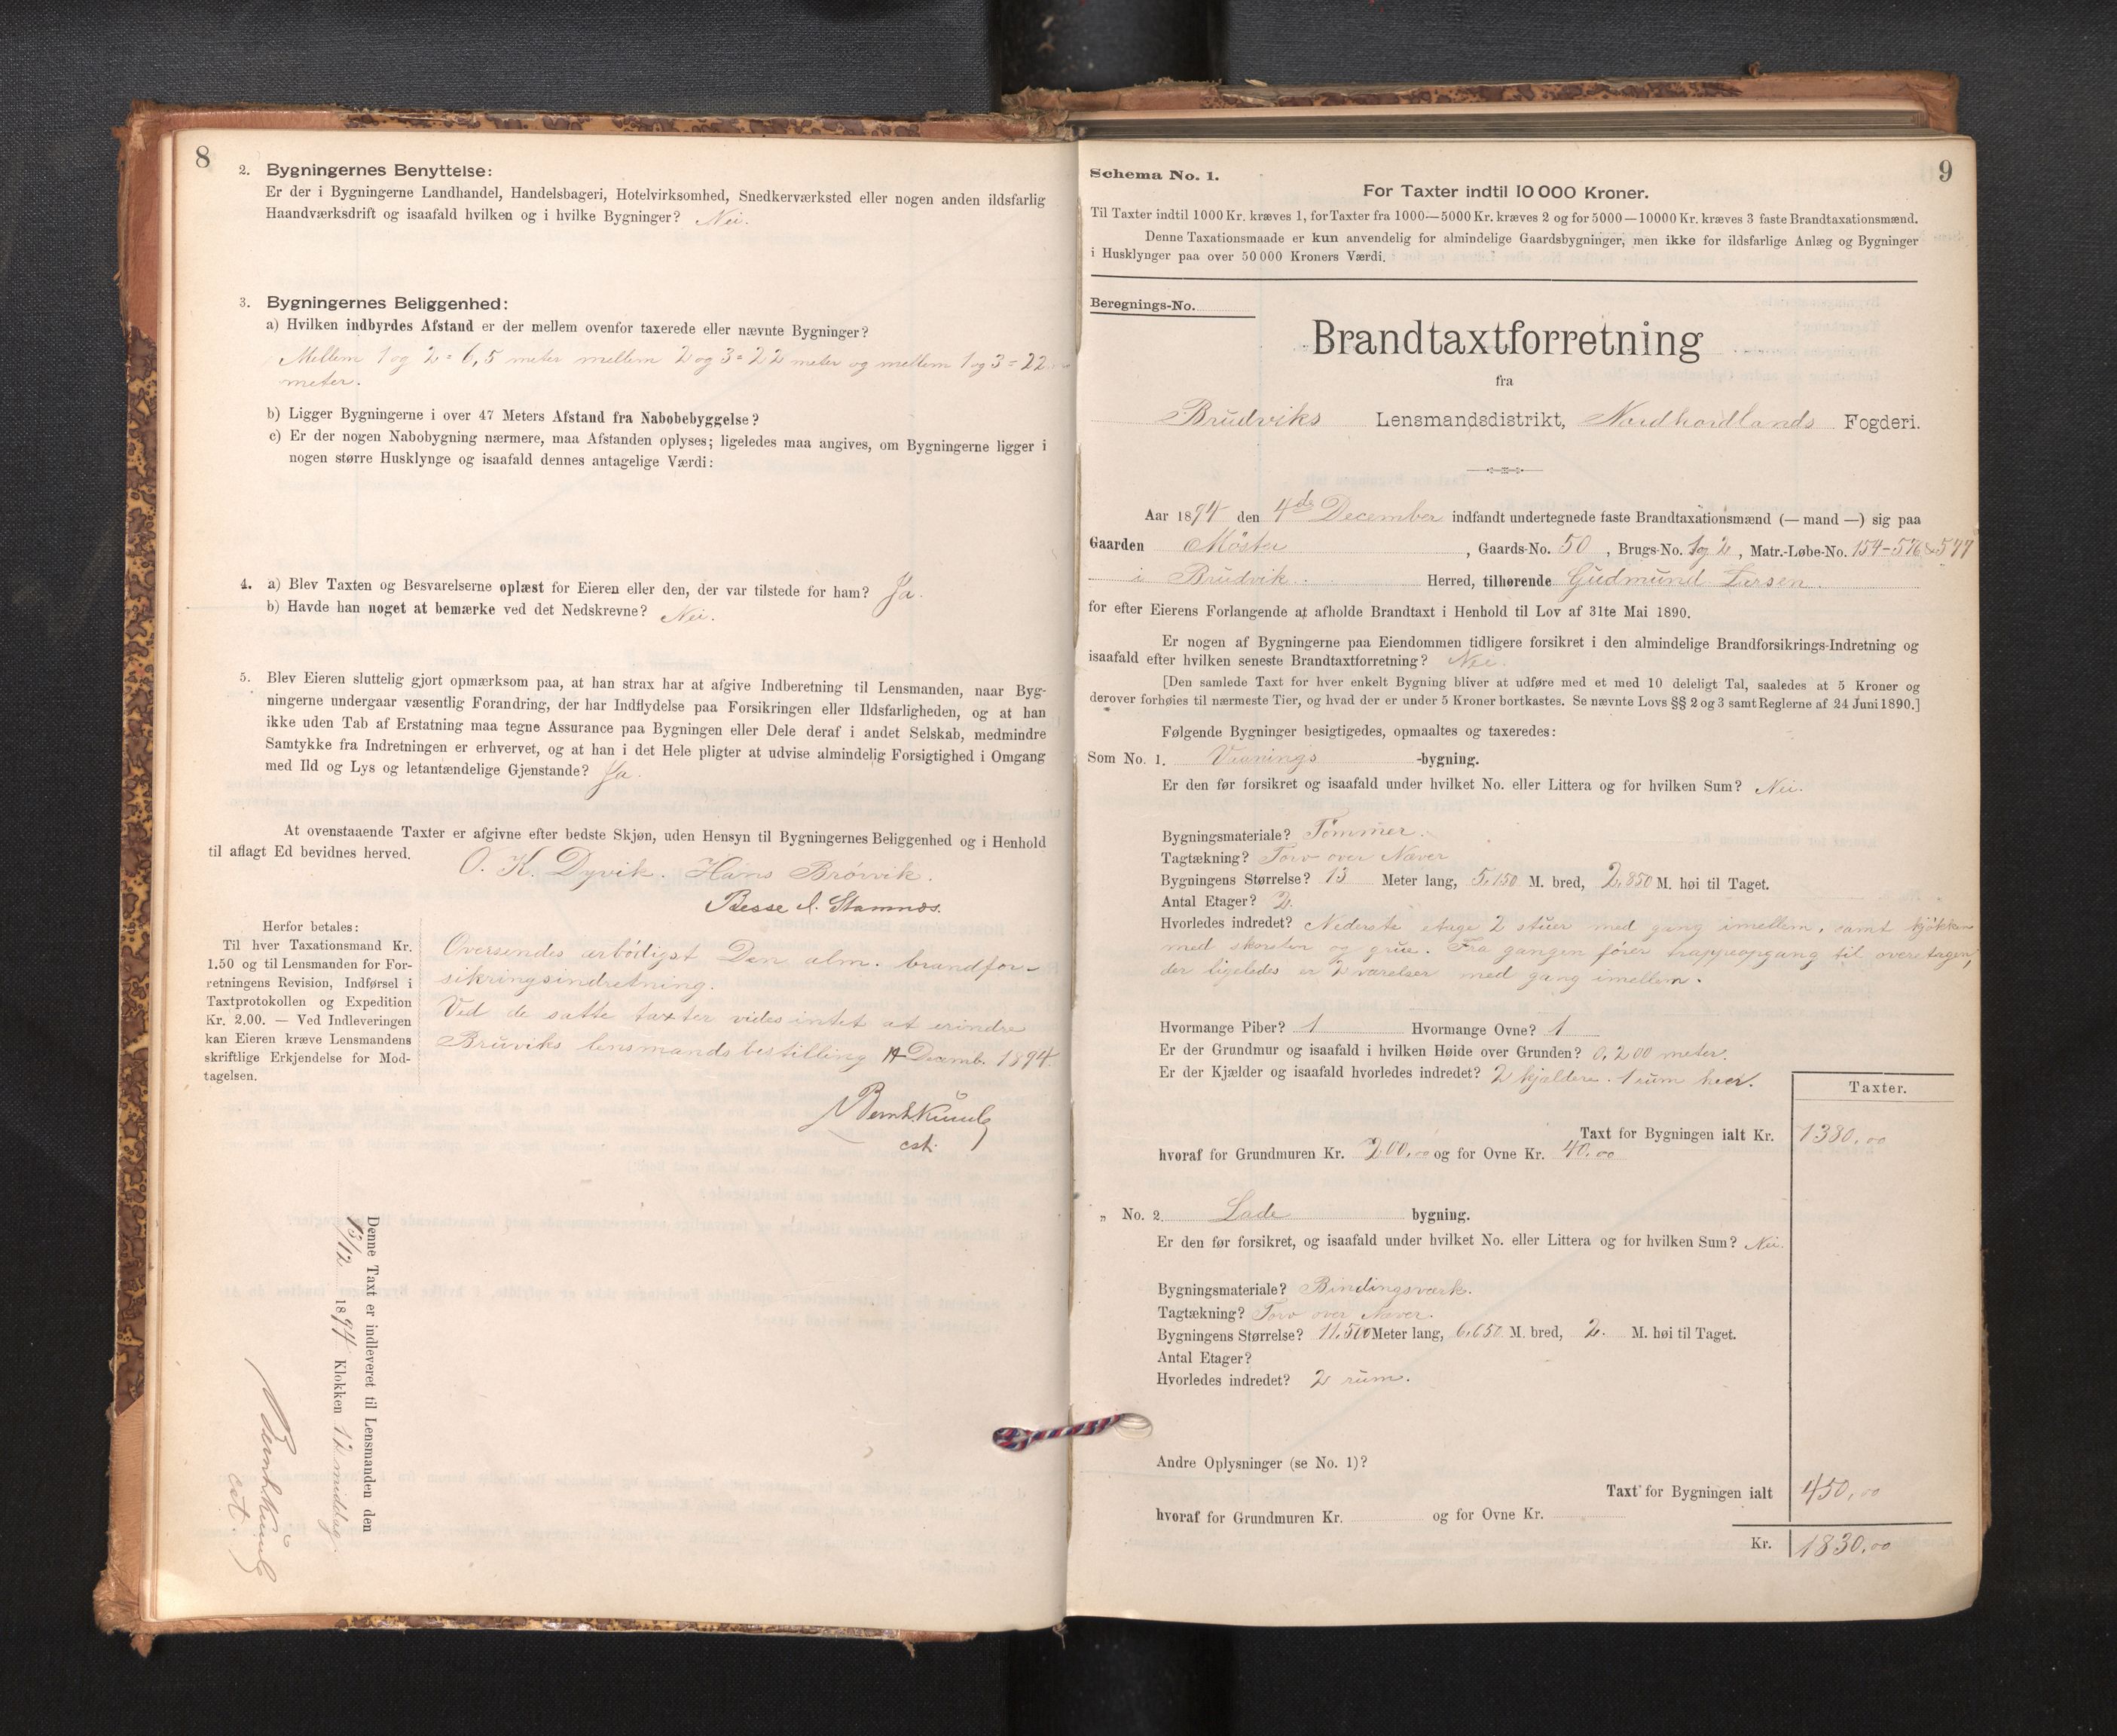 8
2. Bygningernes Benyttelse:
Er der i Bygningerne Landhandel, Handelsbageri, Hotelvirksomhed, Snedkerværksted eller nogen anden ildsfarlig
Haandværksdrift og isaafald hvilken og i hvilke Bygninger? Nei.
3. Bygningernes Beliggenhed:
a) Hvilken indbyrdes Afstand er der mellem ovenfor taxerede eller nævnte Bygninger?
Mellem 1 og 2 = 6,5 meter mellem 2 og 3 = 22 meter og mellem 1 og 3 = 22
meter.
b) Ligger Bygningerne i over 47 Meters Afstand fra Nabobebyggelse?
c) Er der nogen Nabobygning nærmere, maa Afstanden oplyses; ligeledes maa angives, om Bygningerne ligger i
nogen større Husklynge og isaafald dennes antagelige Værdi:
4. a) Blev Taxten og Besvarelserne oplæst for Eieren eller den, der var tilstede for ham? Ja.
b) Havde han noget at bemærke ved det Nedskrevne? Nei.
5. Blev Eieren sluttelig gjort opmærksom paa, at han strax har at afgive Indberetning til Lensmanden, naar Byg-
ningerne undergaar væsentlig Forandring, der har Indflydelse paa Forsikringen eller Ildsfarligheden, og at han
ikke uden Tab af Erstatning maa tegne Assurance paa Bygningen eller Dele deraf i andet Selskab, medmindre
Samtykke fra Indretningen er erhvervet, og at han i det Hele pligter at udvise almindelig Forsigtighed i Omgang
med Ild og Lys og letantændelige Gjenstande? Ja.
At ovenstaaende Taxter er afgivne efter bedste Skjøn, uden Hensyn til Bygningernes Beliggenhed og i Henhold
til aflagt Ed bevidnes herved.
O. K. Dyvik. Hans Brörvik.
Besse I. Stamnes.
Herfor betales:
Til hver Taxationsmand Kr.
1.50 og til Lensmanden for For-
retningens Revision, Indførsel i
Taxtprotokollen og Expedition
Kr. 2.00. — Ved Indleveringen
kan Eieren kræve Lensmandens
skriftlige Erkjendelse for Mod-
tagelsen.
Oversendes arbödigst Den alm. brandfor-
sikringsindretning.
Ved de satte taxter vides intet at erindre
Bruviks lensmandsbestilling 14 Decemb. 1894.
cst.
Denne Taxt er indleveret til Lensmanden den
13/12 1894 Klokken 12 middag.
cst.
9
Schema No. 1.
For Taxter indtil 10 000 Kroner.
Til Taxter indtil 1000 Kr. kræves 1, for Taxter fra 1000—5000 Kr. kræves 2 og for 5000—10000 Kr. kræves 3 faste Brandtaxationsmænd.
Denne Taxationsmaade er kun anvendelig for almindelige Gaardsbygninger, men ikke for ildsfarlige Anlæg og Bygninger
i Husklynger paa over 50 000 Kroners Værdi.
Beregnings-No.
Brandtaxtforretning
fra
Brudviks Lensmandsdistrikt, Nordhordlands Fogderi.
Aar 1894 den 4de December indfandt undertegnede faste Brandtaxationsmænd (— mand —) sig paa
Gaarden Möster, Gaards-No. 50, Brugs-No. 1 og 2, Matr.-Løbe-No. 154-576 & 577
i Brudvik Herred, tilhørende Gudmund Larsen.
for efter Eierens Forlangende at afholde Brandtaxt i Henhold til Lov af 31te Mai 1890.
Er nogen af Bygningerne paa Eiendommen tidligere forsikret i den almindelige Brandforsikrings-Indretning og
isaafald efter hvilken seneste Brandtaxtforretning? Nei.
[Den samlede Taxt for hver enkelt Bygning bliver at udføre med et med 10 deleligt Tal, saaledes at 5 Kroner og
derover forhøies til nærmeste Tier, og hvad der er under 5 Kroner bortkastes. Se nævnte Lovs §§ 2 og 3 samt Reglerne af 24 Juni 1890.]
Følgende Bygninger besigtigedes, opmaaltes og taxeredes:
Som No. 1. Vaanings -bygning.
Er den før forsikret og isaafald under hvilket No. eller Littera og for hvilken Sum? Nei.
Bygningsmateriale? Tömmer.
Tagtækning? Torv over Næver
Bygningens Størrelse? 13 Meter lang, 5.150 M. bred, 2.850 M. høi til Taget.
Antal Etager? 2.
Hvorledes indredet? Nederste etage 2 stuer med gang imellem, samt kjökken
med skorsten og grue. Fra gangen förer trappeopgang til overetagen,
der ligeledes er 2 værelser med gang imellem.
Hvormange Piber? 1 Hvormange Ovne? 1
Er der Grundmur og isaafald i hvilken Høide over Grunden? 0,200 meter.
Er der Kjælder og isaafald hvorledes indredet? 2 kjældere. 1 rum hver.
Taxter.
Taxt for Bygningen ialt Kr. 1380,00
hvoraf for Grundmuren Kr. 200,00 og for Ovne Kr. 40,00
„ No. 2. Lade bygning.
Er den før forsikret, og isaafald under hvilket No. eller Littera og for hvilken Sum? Nei.
Bygningsmateriale? Bindingsværk.
Tagtækning? Torv over Næver.
Bygningens Størrelse? 11.500 Meter lang, 6.650 M. bred, 2. M. høi til Taget.
Antal Etager?
Hvorledes indredet? 2 rum.
Andre Oplysninger (se No. 1)?
Taxt for Bygningen ialt 450,00
hvoraf for Grundmuren Kr. og for Ovne Kr.
Kr. 1830,00